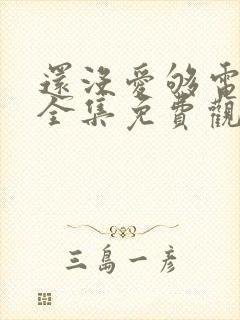 還沒愛够電
全集免費觀
三島一彦